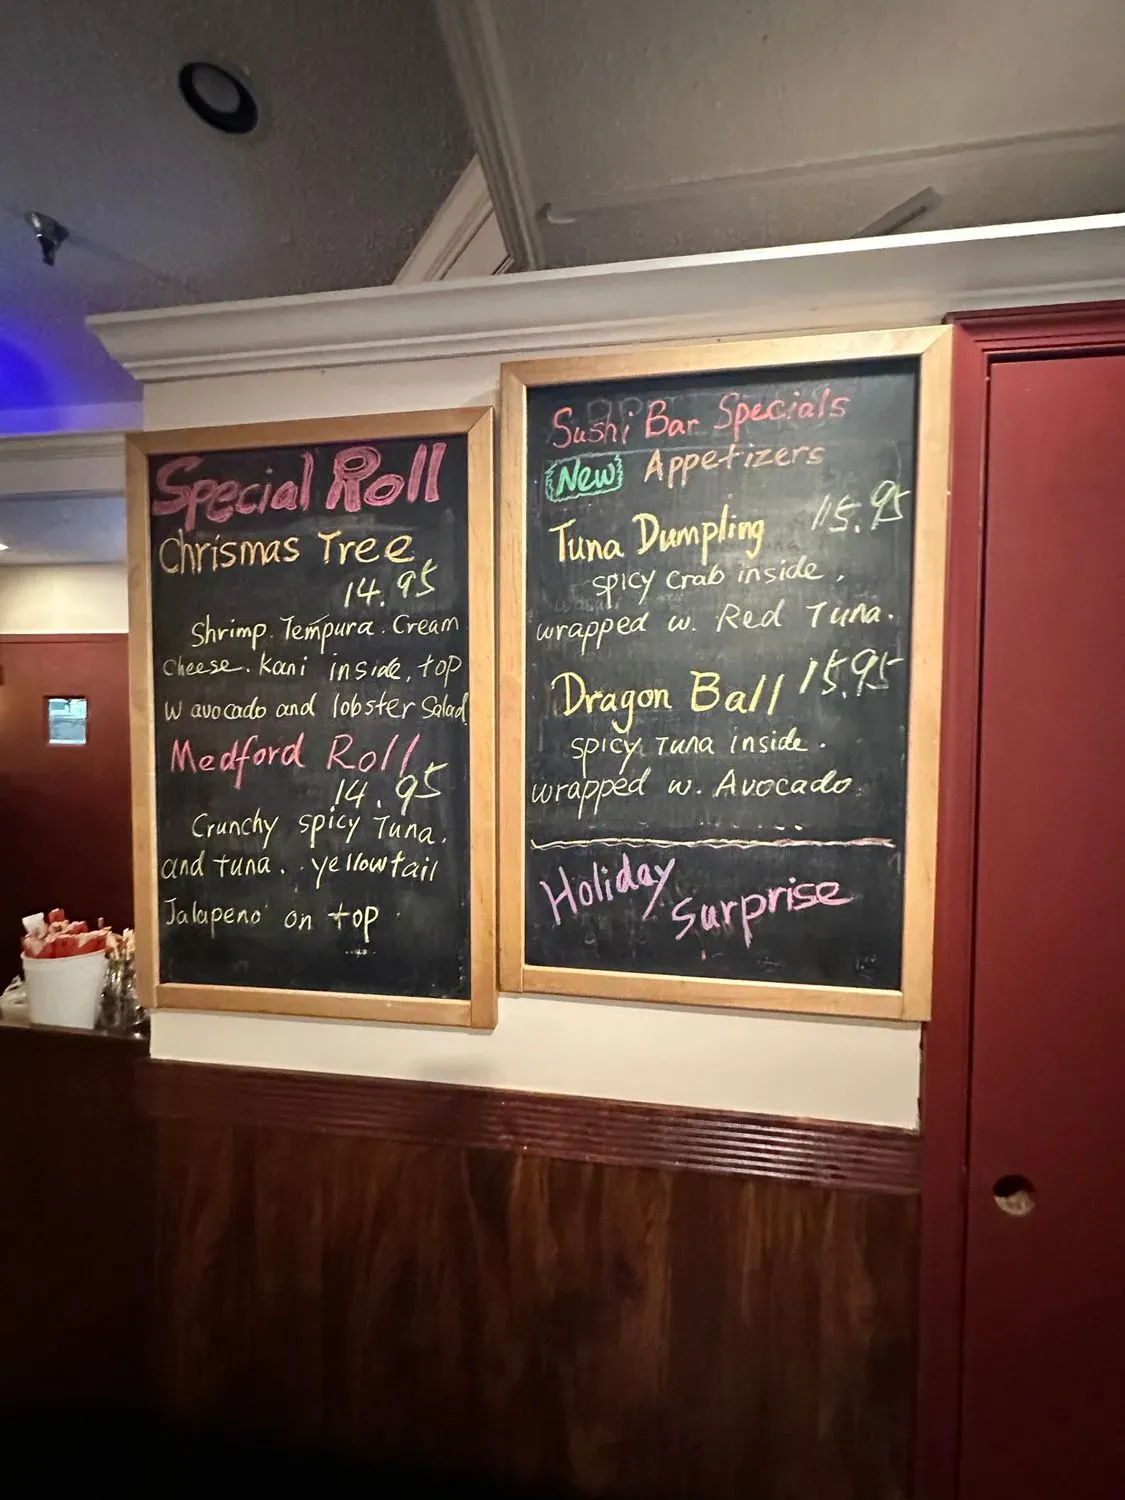 Special Roll
Chrismas Tree
14.95
Shrimp. Tempura. Cream
cheese. Kani inside, top
w avocado and lobster Salad
Medford Roll
14.95
Crunchy spicy Tuna.
and tuna. yellowtail
Jalapeno on top
Sushi Bar Specials
New Appetizers
Tuna Dumpling 15.95
spicy crab inside.
wrapped w. Red Tuna.
Dragon Ball 15.95
spicy Tuna inside.
wrapped w. Avocado.
Holiday
Surprise